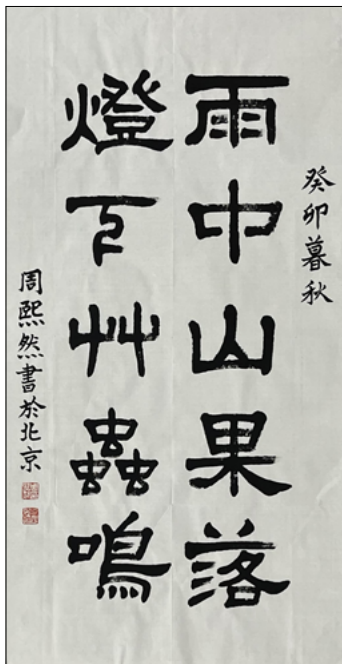 癸卯暮秋
雨中山果落
燈下艸蟲鳴
周熙然書於北京